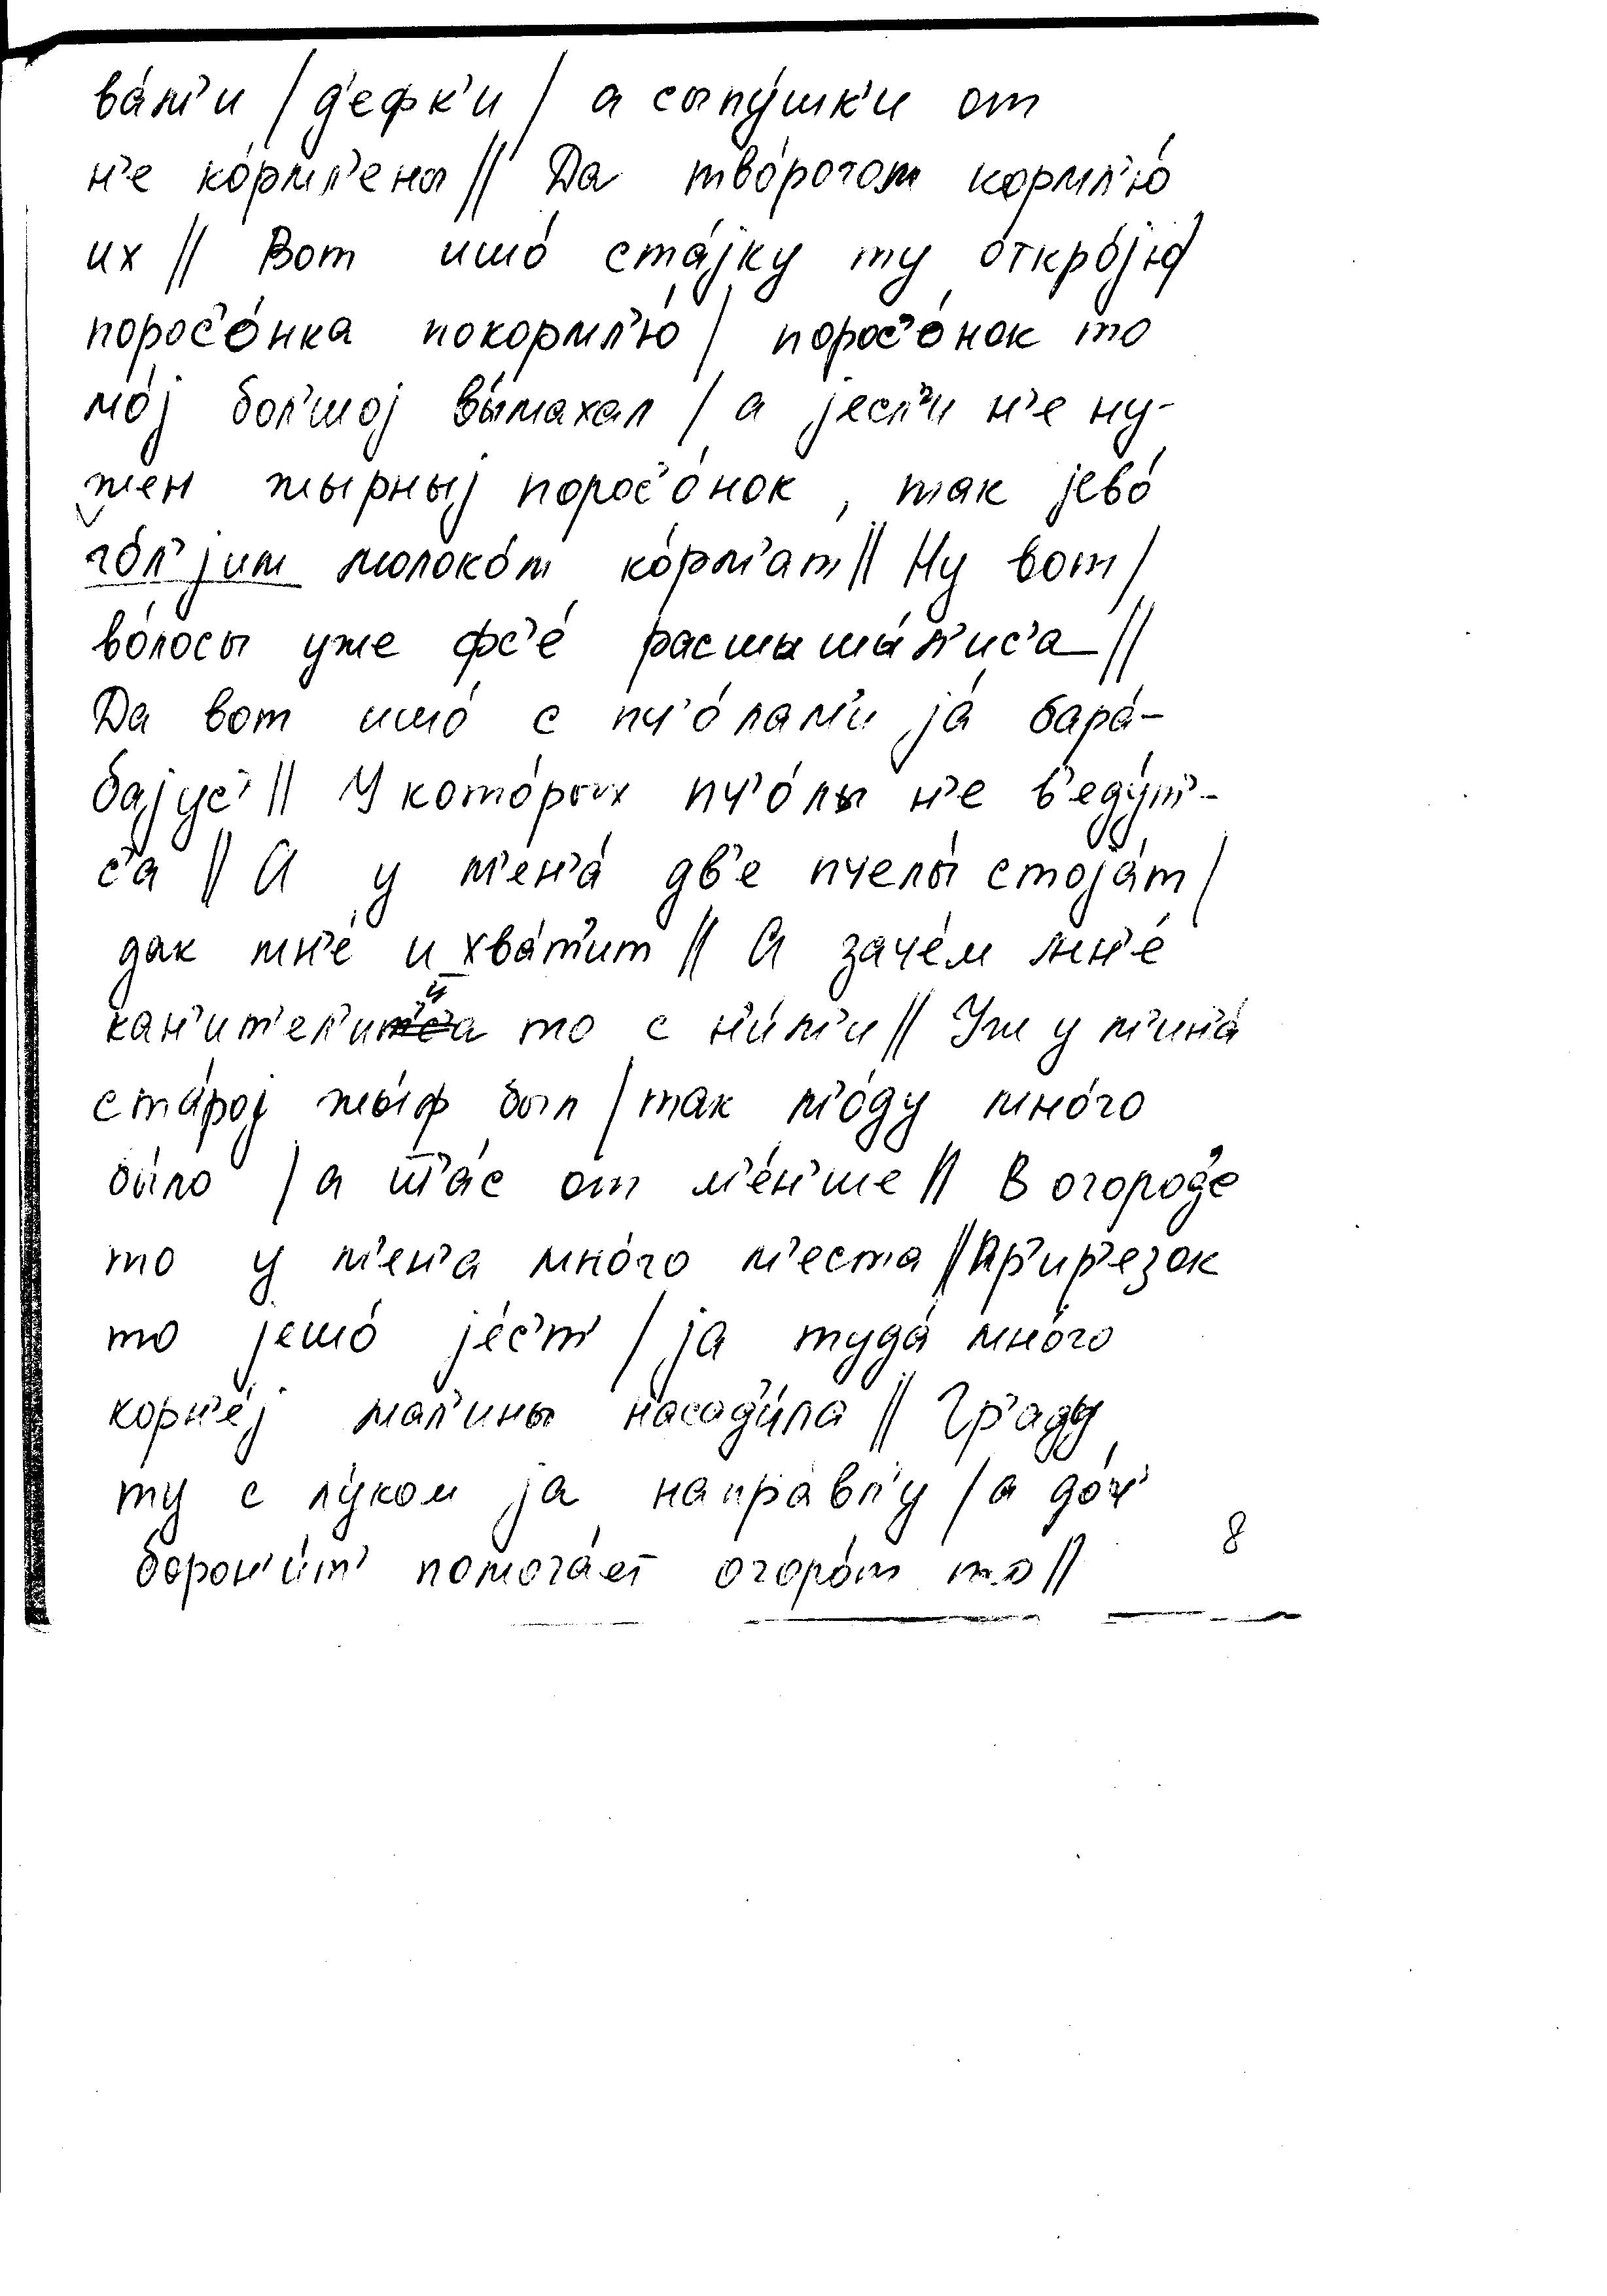 ва́м'и / д'ефк'и / а сыпу́шк'и от
н'е ко́рмл'ены // Да тво́рогом кормл'ю́
их // Вот ишо́ ста́јку ту откро́јю
порос'о́нка покормл'ю́ / порос'о́нок то
мо́ј бол'шој вы́махал / а јесл'и н'е ну-
жен жырныј порос'о́нок, так јево́
го́л'јим молоко́м ко́рм'ат // Ну вот /
во́лосы уже фс'е́ расшыша́л'ис'а //
Да вот ишо́ с пч'о́лам'и ја́ бара́-
бајус' // У кото́рых пч'о́лы н'е в'еду́т-
с'а // А у м'ен'а́ дв'е пчелы́ стоја́т /
дак мн'е́ и хва́т'ит // А заче́м мн'е́
кан'ит'ел'ица то с н'и́м'и // Уж у м'ин'а́
ста́рој жы́ф был / так м'о́ду мно́го
бы́ло / а ш'а́с от м'е́н'ше // В огород'е
то у м'ен'а мно́го м'еста // Пр'ир'езок
то јешо́ је́с'т' / ја туда́ мно́го
корн'е́ј мал'ины насад'и́ла // Гр'аду
ту с лу́ком ја напра́вл'у / а до́ч'
борон'и́т' помога́ет огоро́т то //
8